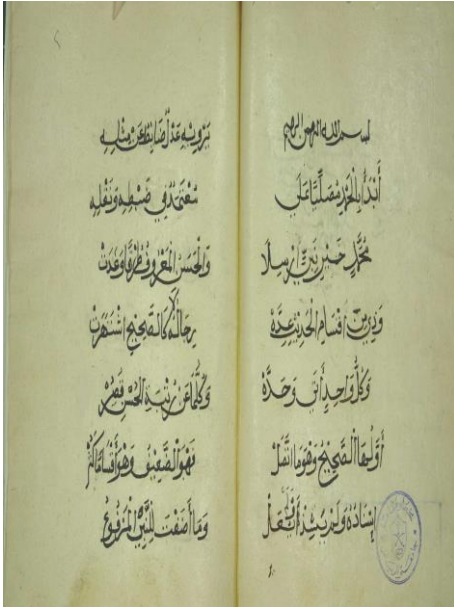 بسم الله الرحمن الرحيم
أَبْدَأُ بِالْحَمْدِ مُصَلِّيًا عَلَى
مُحَمَّدٍ خَيْرِ نَبِيٍّ ارْسِلَا
وَذِي مِنَ اقْسَامِ الْحَدِيثِ عِدَّهْ
وَكُلُّ وَاحِدٍ أَتَى وَحَدَّهْ
أَوَّلُهَا الصَّحِيحُ وَهُوَ مَا اتَّصَلْ
إِسْنَادُهُ وَلَمْ يَشِذَّ أَوْ يُعَلْ
يَرْوِيهِ عَدْلٌ ضَابِطٌ عَنْ مِثْلِهِ
مُعْتَمَدٌ فِي ضَبْطِهِ وَنَقْلِهِ
وَالْحَسَنُ الْمَعْرُوفُ طُرْقًا وَغَدَتْ
رِجَالُهُ لَا كَالصَّحِيحِ اشْتَهَرَتْ
وَكُلَّمَا عَنْ رُتْبَةِ الْحُسْنِ قَصُرْ
فَهْوَ الضَّعِيفُ وَهْوَ أَقْسَامًا كَثُرْ
وَمَا أَضَفْتَ لِلنَّبِيِّ الْمَرْفُوعُ